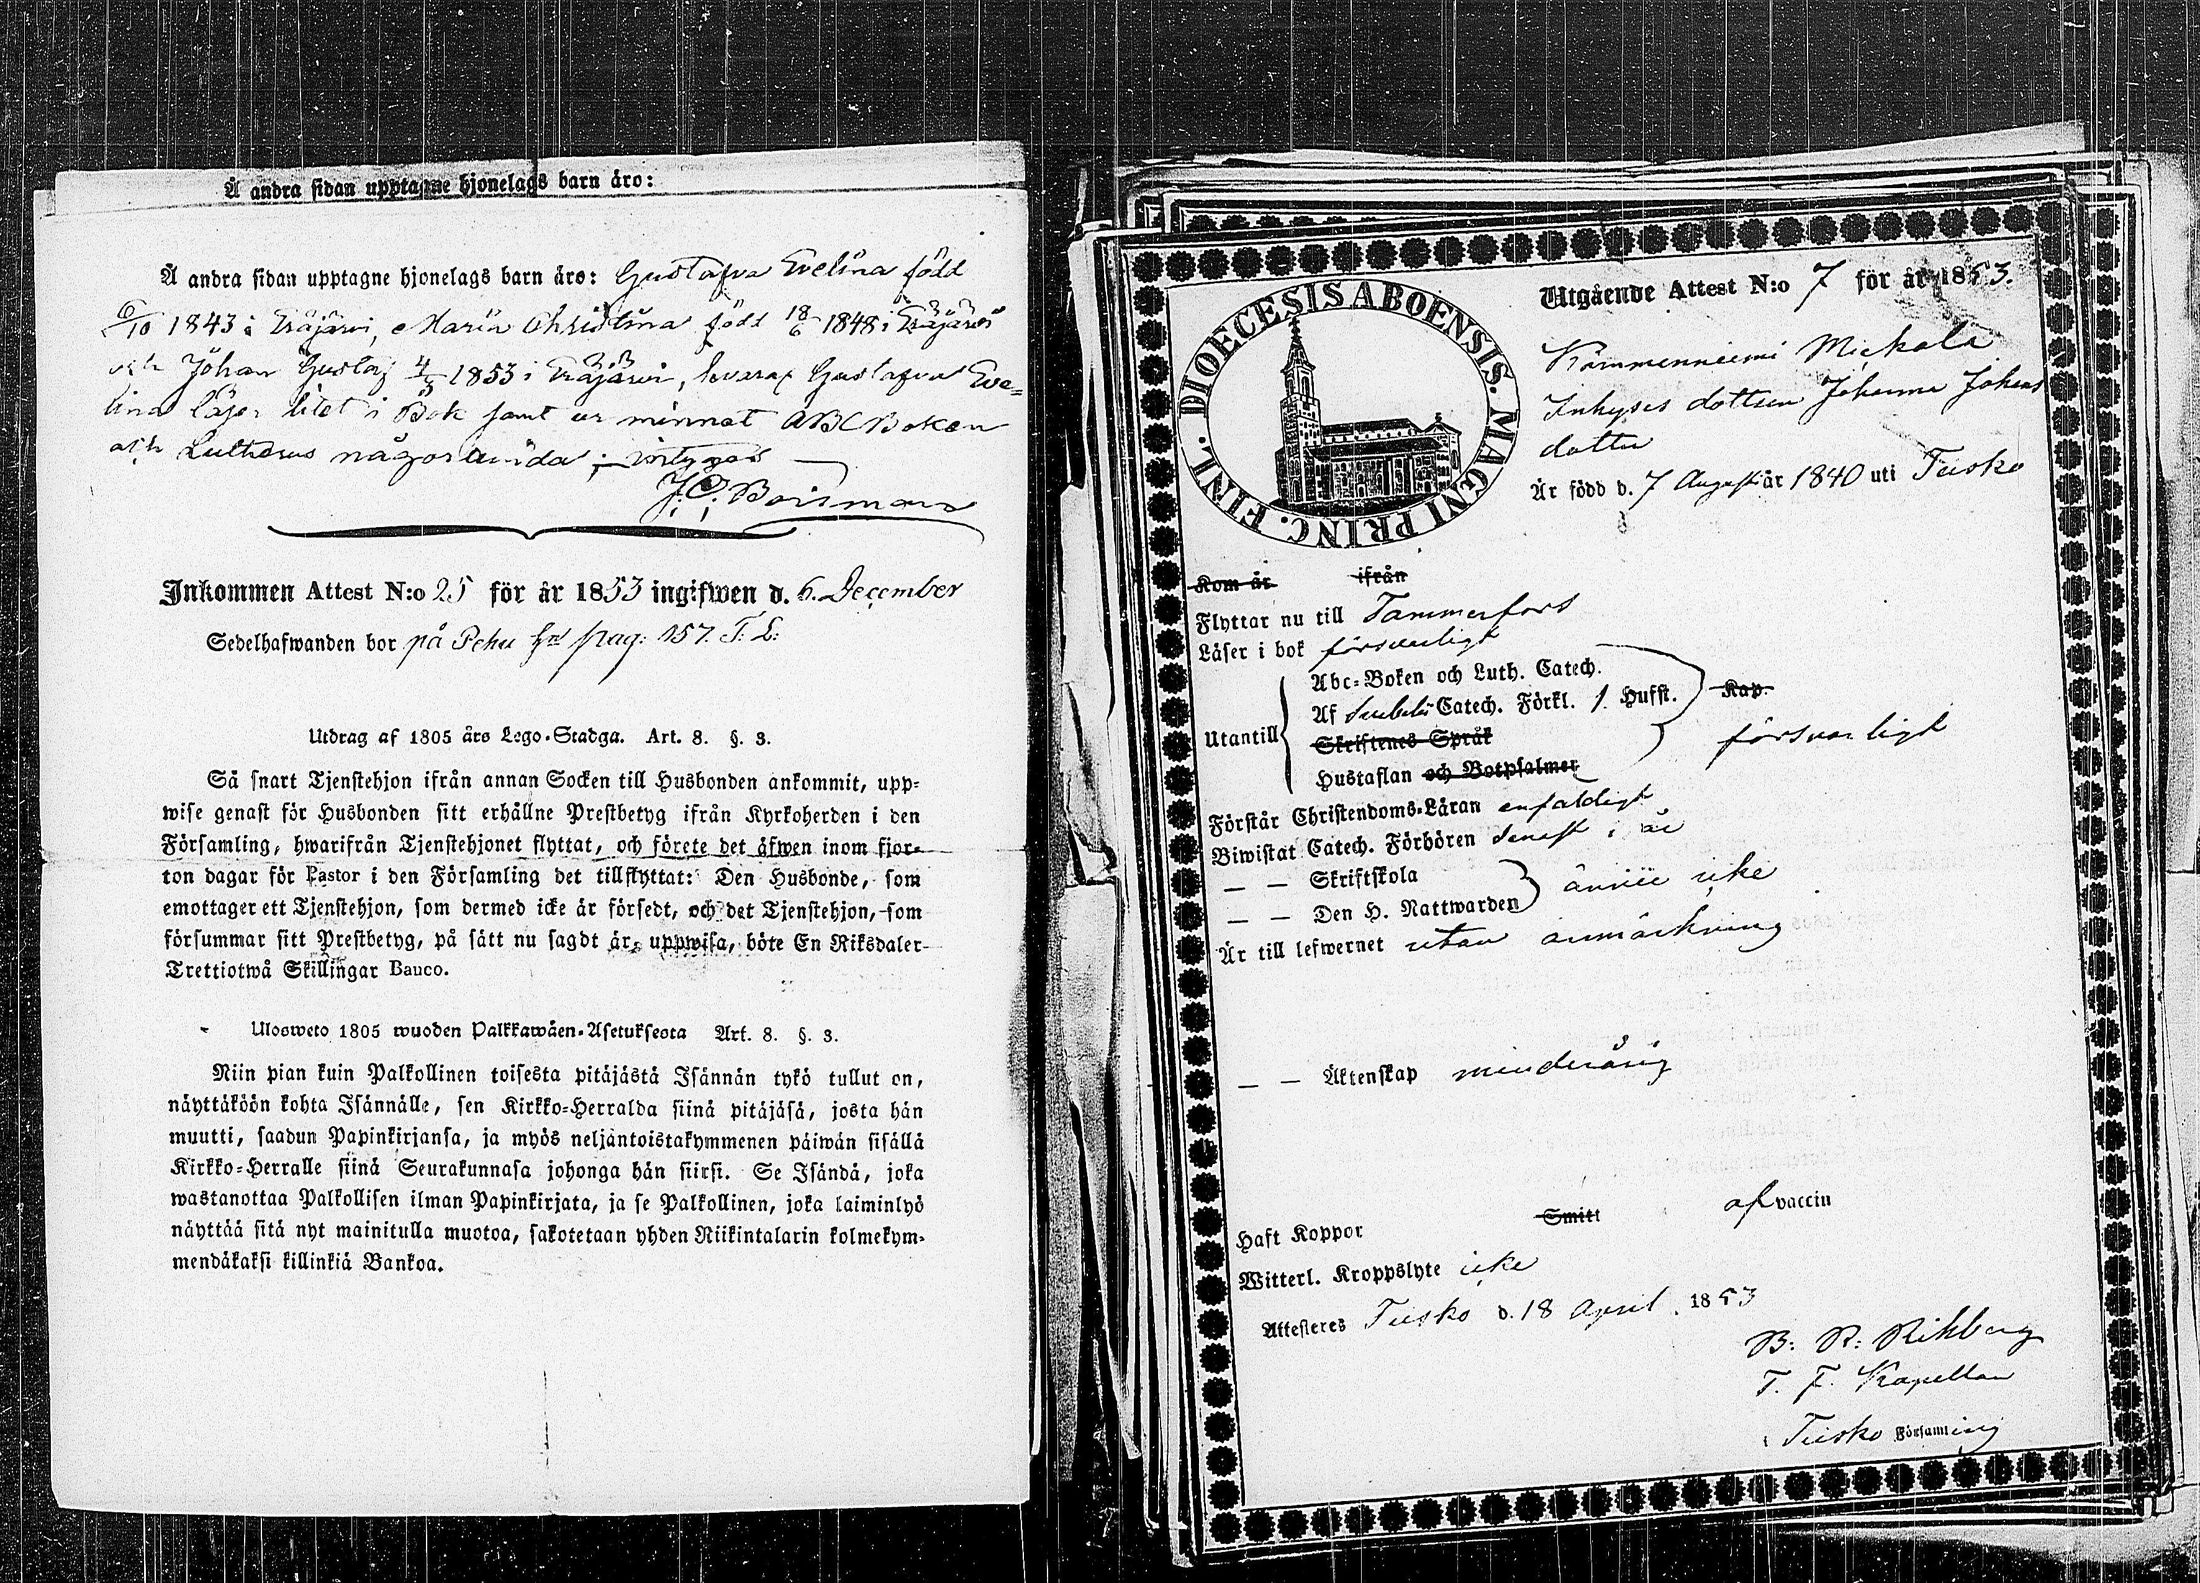 Å andra sidan upptagne hjonelags barn äro:
Å andra sidan upptagne hjonelags barn äro: Gustafva Evelina född
6/10 1843 i Eräjärvi, Maria Christina född 18/6 1848 i Eräjärvi
och Johan Gustaf 1853 i Eräjärvi, hvaraf Gustafva Eve=
lina läser litet i Bok samt ur minnet ABC Boken
och Lutherus någorlunda; intygas
Boisman
Inkommen Attest N:o 25 för år 1853 ingifwen d. 6. December
Sedelhafwanden bor på Pehu pag: 157. T: L:
Utdrag af 1805 års Lego-Stadga. Art. 8. §. 3.
Så snart Tjenstehjon ifrån annan Socken till Husbonden ankommit, upp=
wise genast för Husbonden sitt erhållne Prestbetyg ifrån Kyrkoherden i den
Församling, hwarifrån Tjenstehjonet flyttat, och förete det äfwen inom fjor=
ton dagar för Pastor i den Församling det tillflyttat: Den Husbonde, som
emottager ett Tjenstehjon, som dermed icke är försedt, och det Tjenstehjon, som
försummar sitt Prestbetyg, på sätt nu sagdt är, uppwisa, böte En Riksdaler
Trettiotwå Skillingar Bauco.
Ulosweto 1805 wuoden Palkkawäen-Asetuksesta Art. 8. §. 3.
Niin pian kuin Palkollinen toisesta pitäjästä Isännän tykö tullut on,
näyttäköön kohta Isännälle, sen Kirkko=Herralda siinä pitäjäsä, josta hän
muutti, saadun Papinkirjansa, ja myös neljäntoistakymmenen päiwän sisällä
Kirkko=Herralle siinä Seurakunnasa johonga hän siirsi. Se Isändä, joka
wastanottaa Palkollisen ilman Papinkirjata, ja se Palkollinen, joka laiminlyö
näyttää sitä nyt mainitulla muotoa, sakotetaan yhden Riikintalarin kolmekym=
mendäkaksi killinkiä Bankoa.
DIOECESIS ABOENSIS. MAGNI PRINC. FINL.
Utgående Attest N:o 7 för år 1853.
Kämmenniemi Mickola
Inhyses dottren Johanna Johans
dotter
Är född d. 7 Augusti år 1840 uti Teisko
Kom år ifrån
Flyttar nu till Tammerfors
Läser i bok försvarligt
Abc=Boken och Luth. Catech.
Af Catech. Förkl. 1 Hufst. Kap.
Utantill
Skriftenes Språk
försvarligt
Hustaflan och Botpsalmer
Förstår Christendoms-Läran enfaldigt
Biwistat Catech. Förhören senast i år
— — Skriftskola
ännu icke
— — Den H. Nattwarden
Är till lefwernet utan anmärkning
— — Äktenskap minderårig
Haft Koppor Smitt af vaccin
Witterl. Kroppslyte icke
Attesteres Teisko d. 18 April 1853
B: R: Rihberg
T. F. Kapellan
Teisko Församling